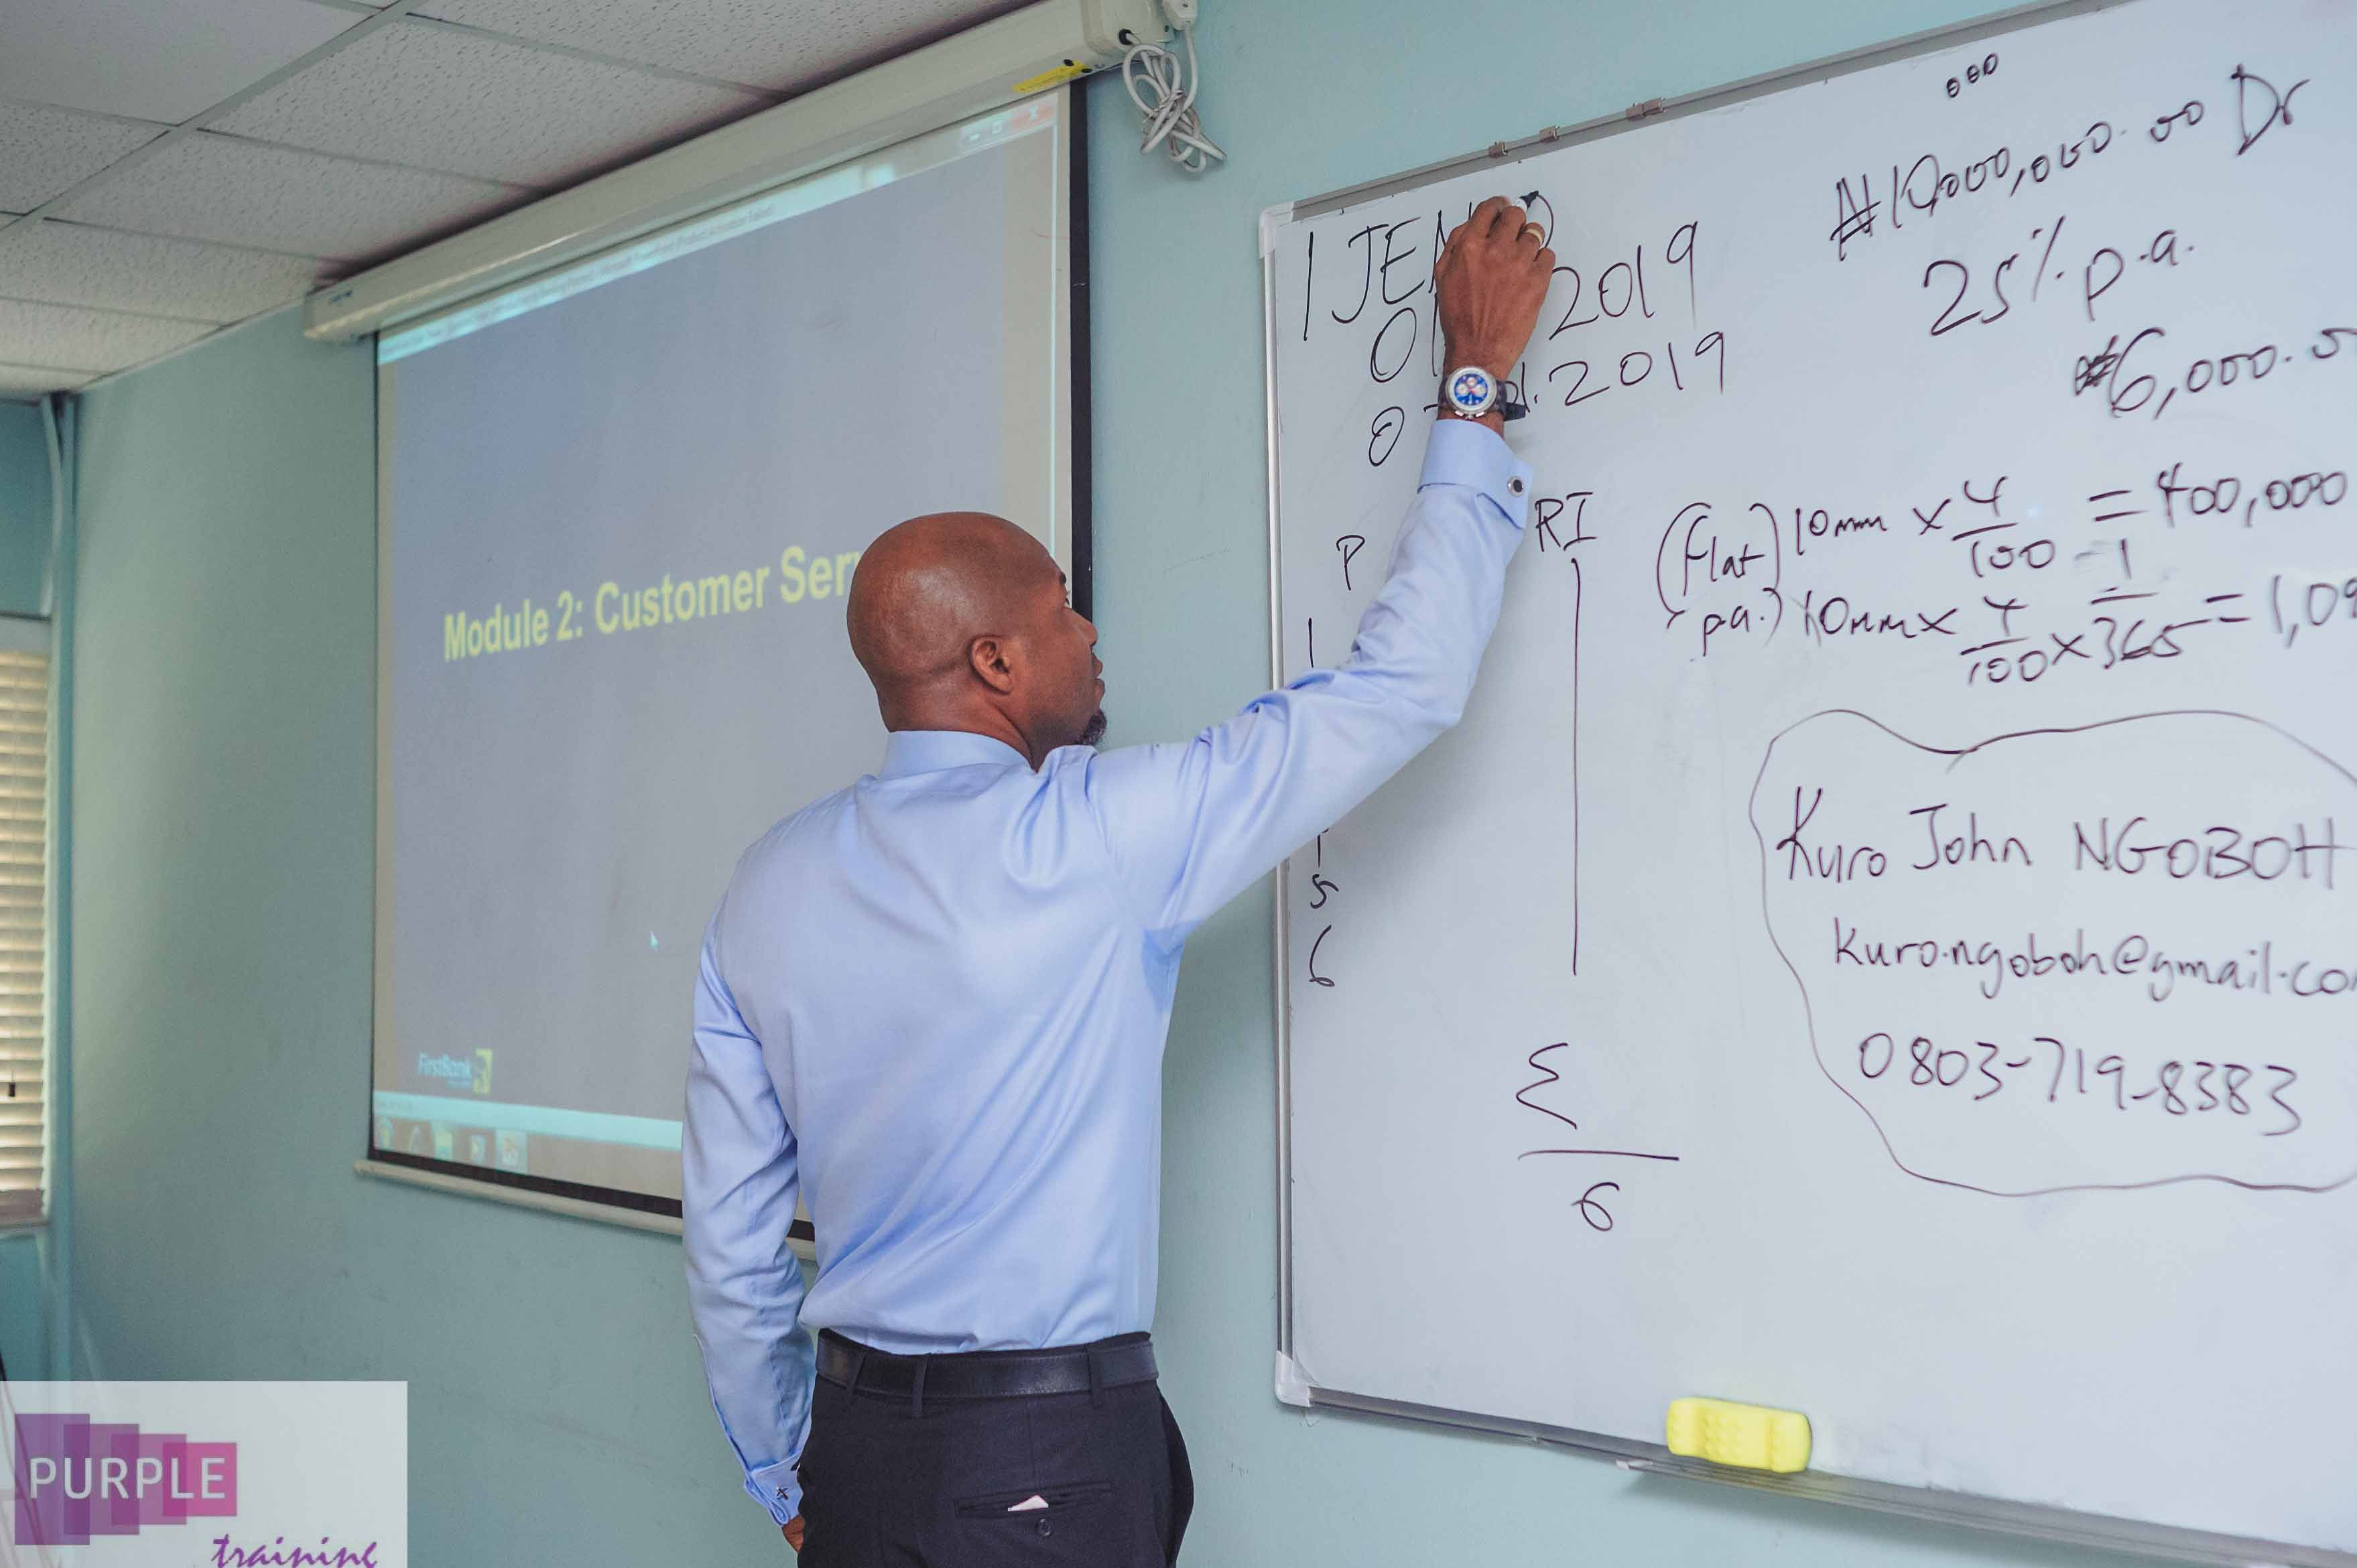 Module 2: Customer Ser
FirstBank
1 JEN
2019
.2019
P
RI
5
6
Σ
6
₦10,000,000.00 Dr
25% p.a.
₦6,000.
(Flat) 10mm × 4/100 = 400,000
p.a.) 10mm × 4/100 × 1/365 = 1,09
Kuro John NGOBOH
kuro.ngoboh@gmail.co
0803-719-8383
PURPLE
training